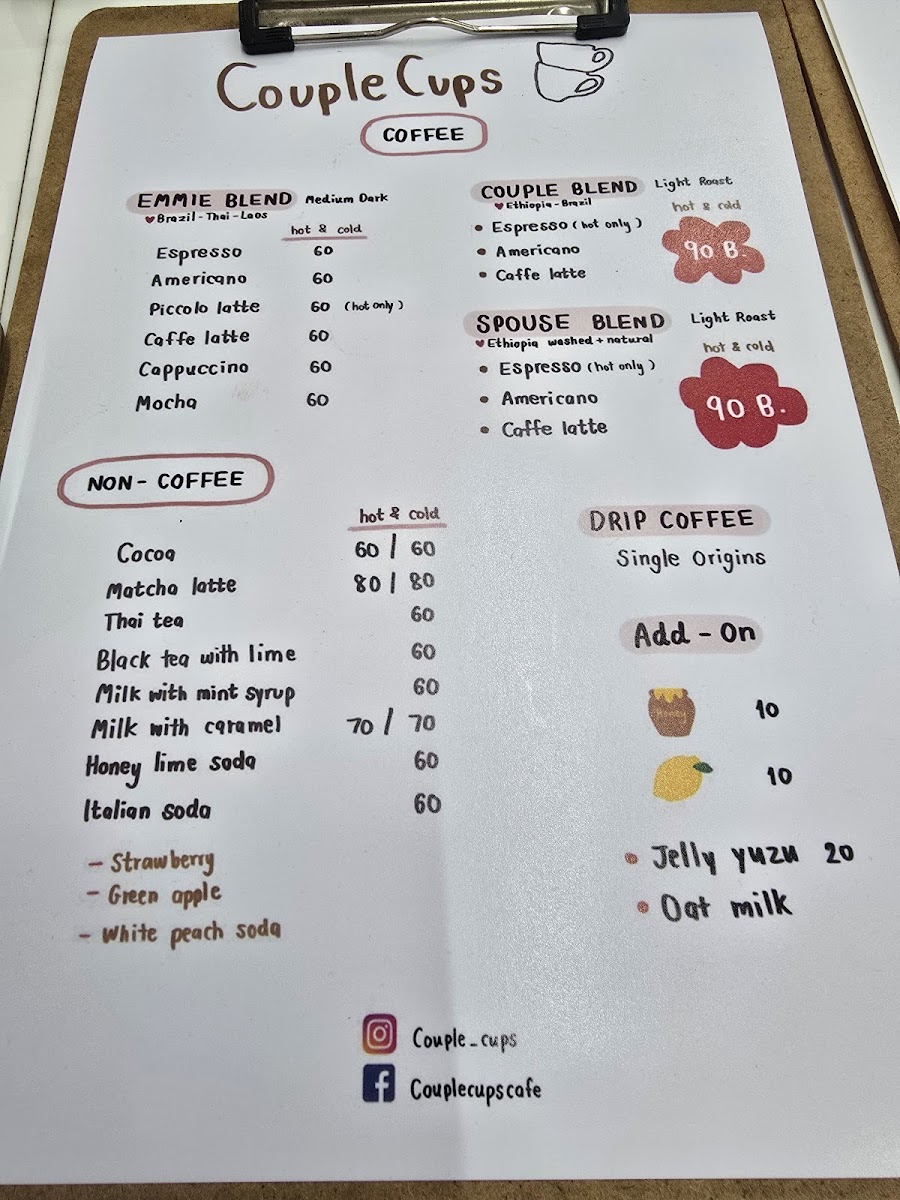 Couple Cups
COFFEE
EMMIE BLEND Medium Dark
Brazil - Thai - Laos
hot & cold
Espresso 60
Americano 60
Piccolo latte 60 (hot only)
Caffe latte 60
Cappuccino 60
Mocha 60
COUPLE BLEND Light Roast
Ethiopia - Brazil
hot & cold
• Espresso (hot only)
• Americano
• Caffe latte
90 B.
SPOUSE BLEND Light Roast
Ethiopia washed + natural
hot & cold
• Espresso (hot only)
• Americano
• Caffe latte
90 B.
NON - COFFEE
hot & cold
Cocoa 60 / 60
Matcha latte 80 / 80
Thai tea 60
Black tea with lime 60
Milk with mint syrup 60
Milk with caramel 70 / 70
Honey lime soda 60
Italian soda 60
- Strawberry
- Green apple
- White peach soda
DRIP COFFEE
Single Origins
Add - On
Honey 10
10
• Jelly yuzu 20
• Oat milk
Couple_cups
Couplecupscafe